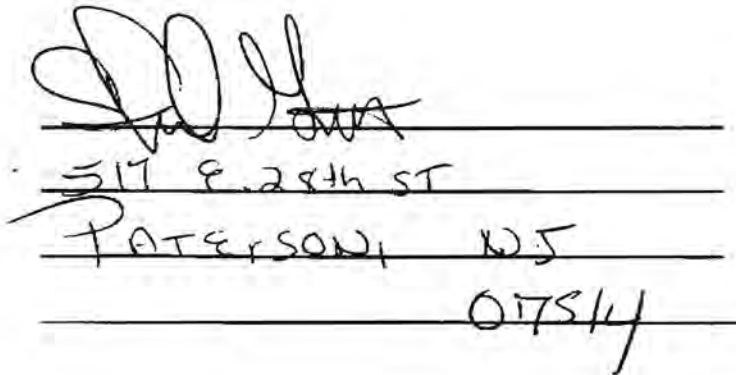 517 E. 28th ST
PATErSON, NJ
07514